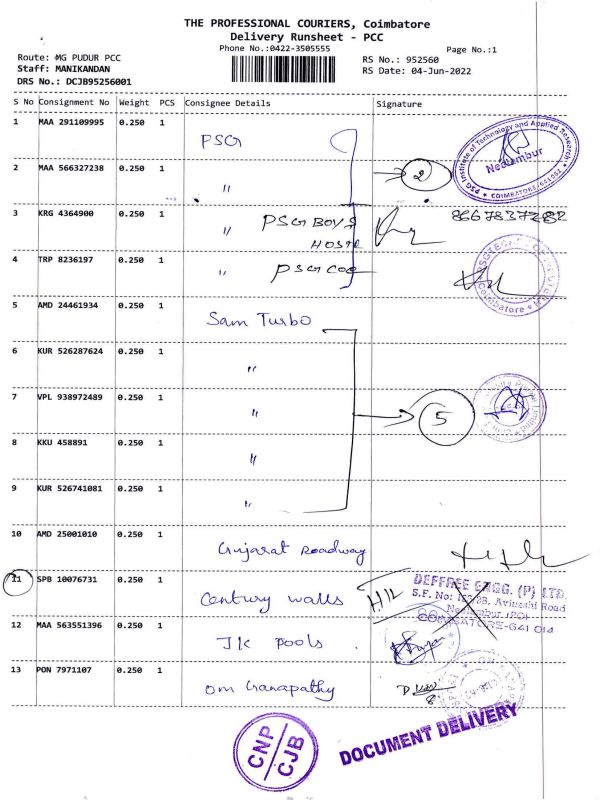 THE PROFESSIONAL COURIERS, Coimbatore
Delivery Runsheet - PCC
Phone No.:0422-3505555
Page No.:1
Route: MG PUDUR PCC
RS No.: 952560
Staff: MANIKANDAN
RS Date: 04-Jun-2022
DRS No.: DCJB95256001
S No Consignment No Weight PCS Consignee Details Signature
1 MAA 291109995 0.250 1 PSG
2 MAA 566327238 0.250 1 " 2
PSG Institute of Technology and Applied Research
Neelambur
COIMBATORE-641062
3 KRG 4364900 0.250 1 " PSG BOYS HOSTEL 8667837282
4 TRP 8236197 0.250 1 " PSG COE
Coimbatore
5 AMD 24461934 0.250 1 Sam Turbo
6 KUR 526287624 0.250 1 "
7 VPL 938972489 0.250 1 " 5
8 KKU 458891 0.250 1 "
9 KUR 526741081 0.250 1 "
10 AMD 25001010 0.250 1 Gujarat roadway
11 SPB 10076731 0.250 1 Century walls
DEFFREE ENGG. (P) LTD.
Avinashi Road
Neelambur (PO)
COIMBATORE-641 014
12 MAA 563551396 0.250 1 JK pools
13 PON 7971107 0.250 1 om Ganapathy
CNP
CJB
DOCUMENT DELIVERY